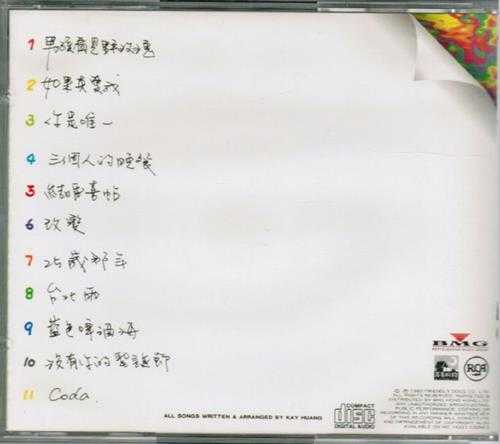 1 男孩看見野玫瑰
2 如果真愛我
3 你是唯一
4 三個人的晚餐
5 結婚喜帖
6 改變
7 25歲那年
8 台北雨
9 藍色啤酒海
10 沒有你的聖誕節
11 Coda.
BMG
RCA
COMPACT
disc
DIGITAL AUDIO
ALL SONGS WRITTEN & ARRANGED BY KAY HUANG